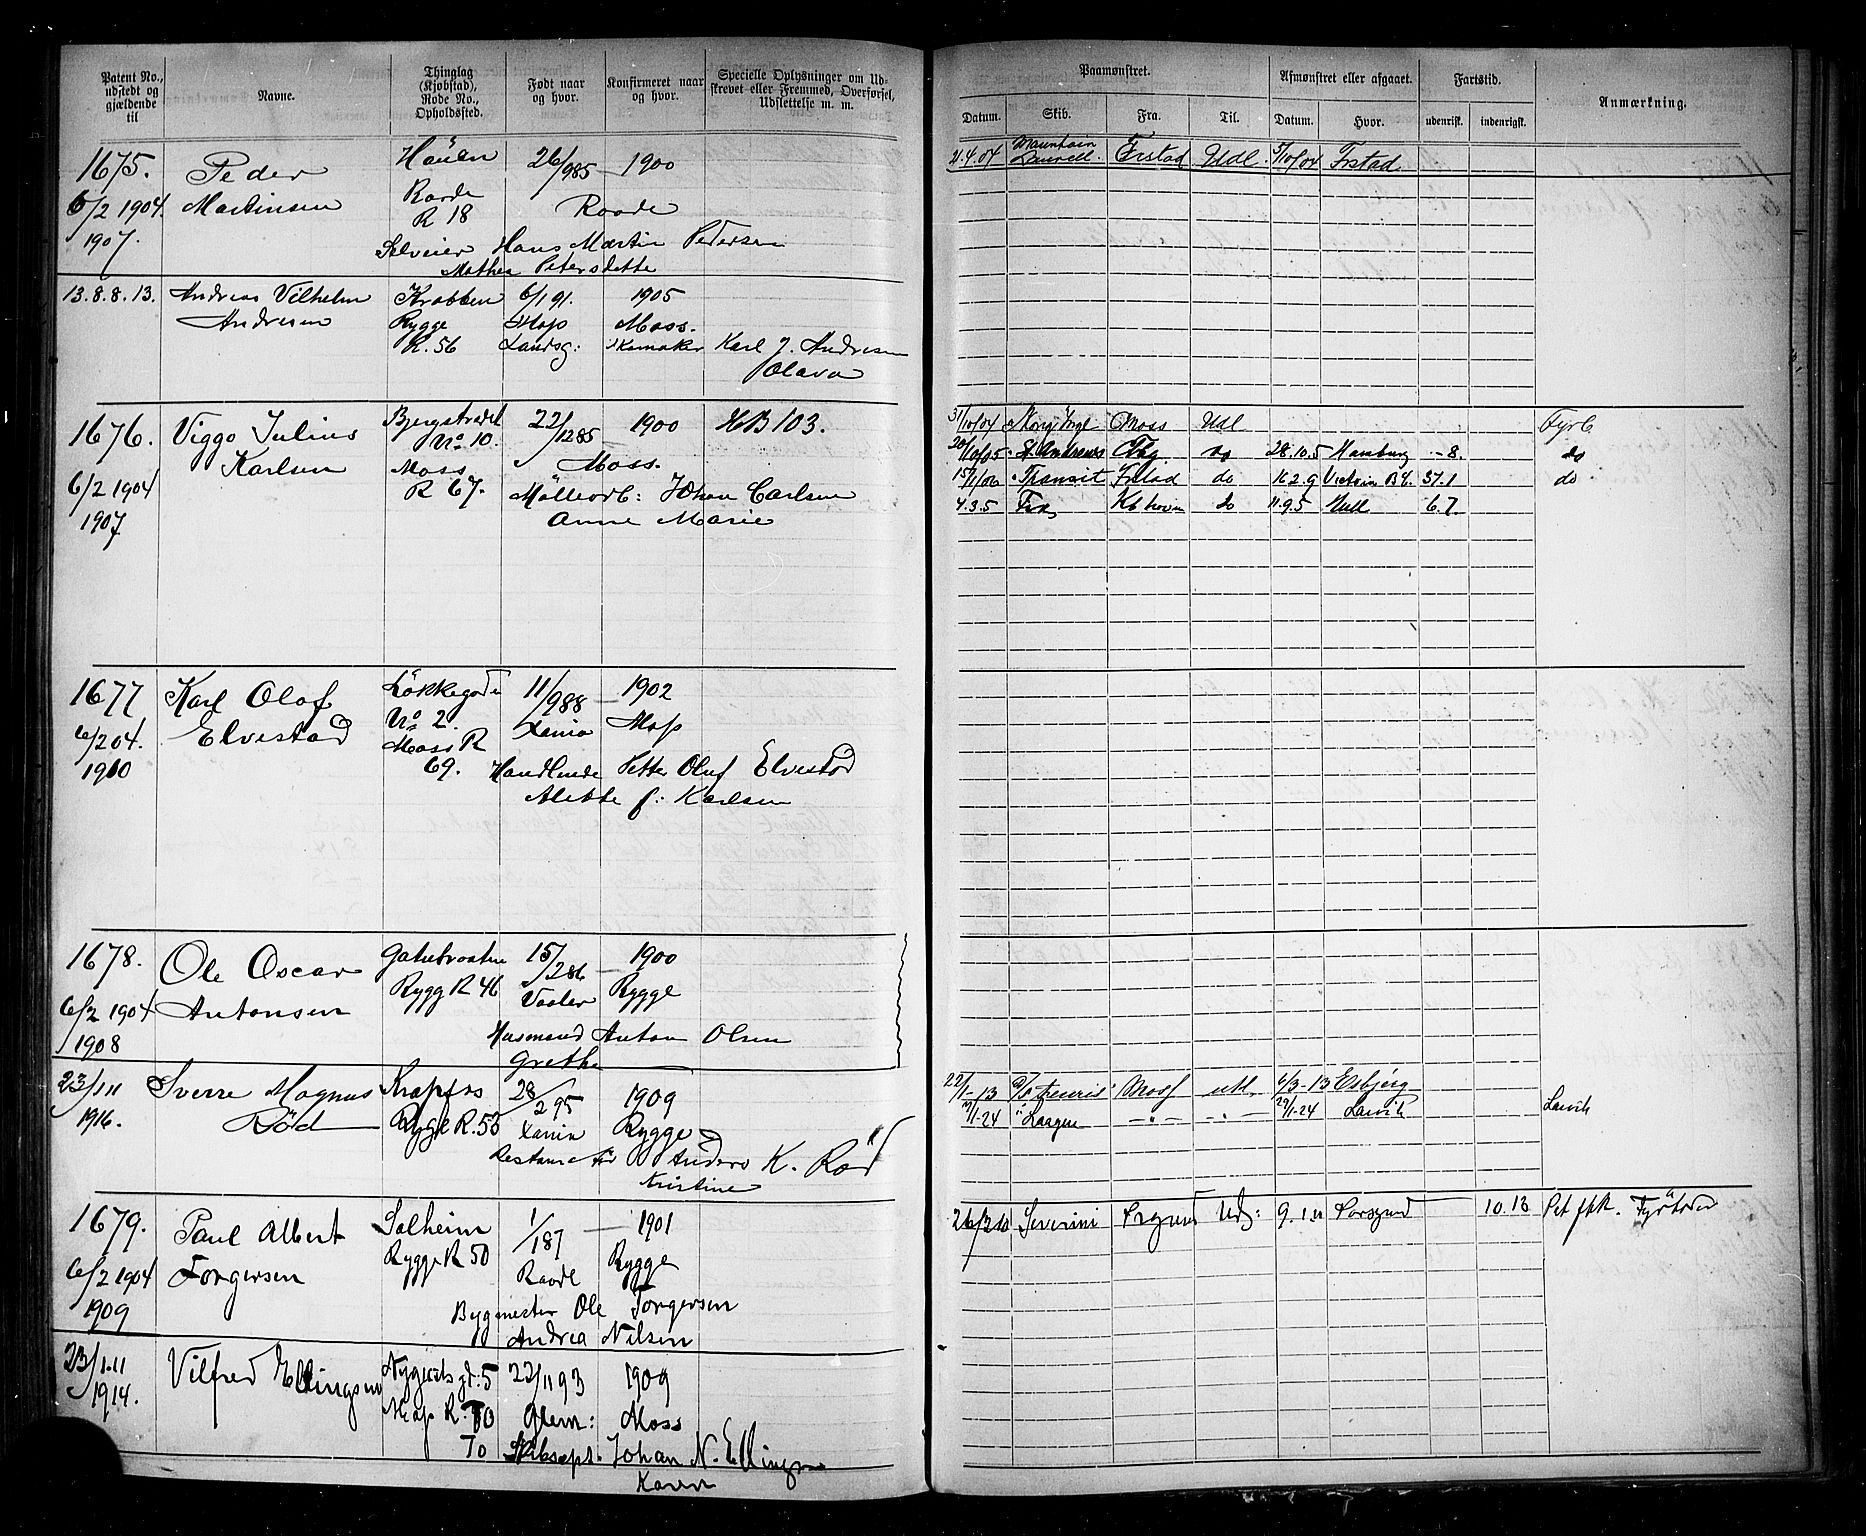 Patent No., udstedt og gjældende til
Navne.
Thinglag (Kjøbstad), Rode No., Opholdssted.
Født naar og hvor.
Konfirmeret naar og hvor.
Specielle Oplysninger om Udskrevet eller Fremmed, Overførsel, Udslettelse m. m.
Paamønstret.
Afmønstret eller afgaaet.
Fartstid.
Anmærkning.
Datum. Skib. Fra. Til. Datum. Hvor. udenrigsk. indenrigsk.
1675. Peder Hauen 26/985 — 1900
6/2 1904. Martinsen Raade Raade
1907. R 18
Selveier Hans Martin Pedersen
Mathea Petersdatter
21.4.04 Mountain Laurell. Frstad Udl 5/10/04 Frstad
13.8.8.13. Andreas Vilhelm Krabben 6/1 91. 1905
Andresen Rygge Moss Moss.
R. 56 Landsg: Skomaker Karl J. Andresen
Olava
1676. Viggo Julius No. 10. 22/1285 — 1900 103.
Karlsen Moss Moss.
6/2 1904 R 67. Johan Carlsen
1907 Anne Marie
31/10/04 Moss Udl Fyrb
20/10/05 St Andrews do 28.10.5 Hamburg - 8. do
15/1/06 Transit Frstad do 16.2.9 Victoria 37.1 do
4.3.5 Kbhavn do 11.9.5 Hull 6.7.
1677 Karl Olaf Løkkegaden 11/988 — 1902
6/2 04. Elvestad No 2 Xania Moss
1910 Moss R 69. Handlende Petter Oluf Elvestad
Alette f: Karlsen
1678. Ole Oscar 15/286 — 1900
6/2 1904 Antonsen Rygg R 46 Vaaler Rygge
1908 Husmand Anton Olsen
Grethe
23/1 11 Sverre Magnus Krapfos 28/2 95 1909
1916. Rød Rygge R. 53 Xania Rygge
Anders K. Rød
Kristine
22/1-13 Moss utl. 6/3-13 Esbjerg
1-24 " Laagen — " — — " — 29/1-24 Larvik Larvik
1679. Paul Albert Solheim 1/187 — 1901
6/2 1904 Torgersen Rygge R 50 Raade Rygge
1909 Bygmester Ole Torgersen
Andrea Nilsen
Severini 9.1.11 Porsgrund 10.13 Fyrbøder
23/1.11 Vilfred Ellingsen 5 22/11 93 1909
1914. Moss R. 70 Glem: Moss
70 Skibskapt. Johan N. Ellingsen
Karen